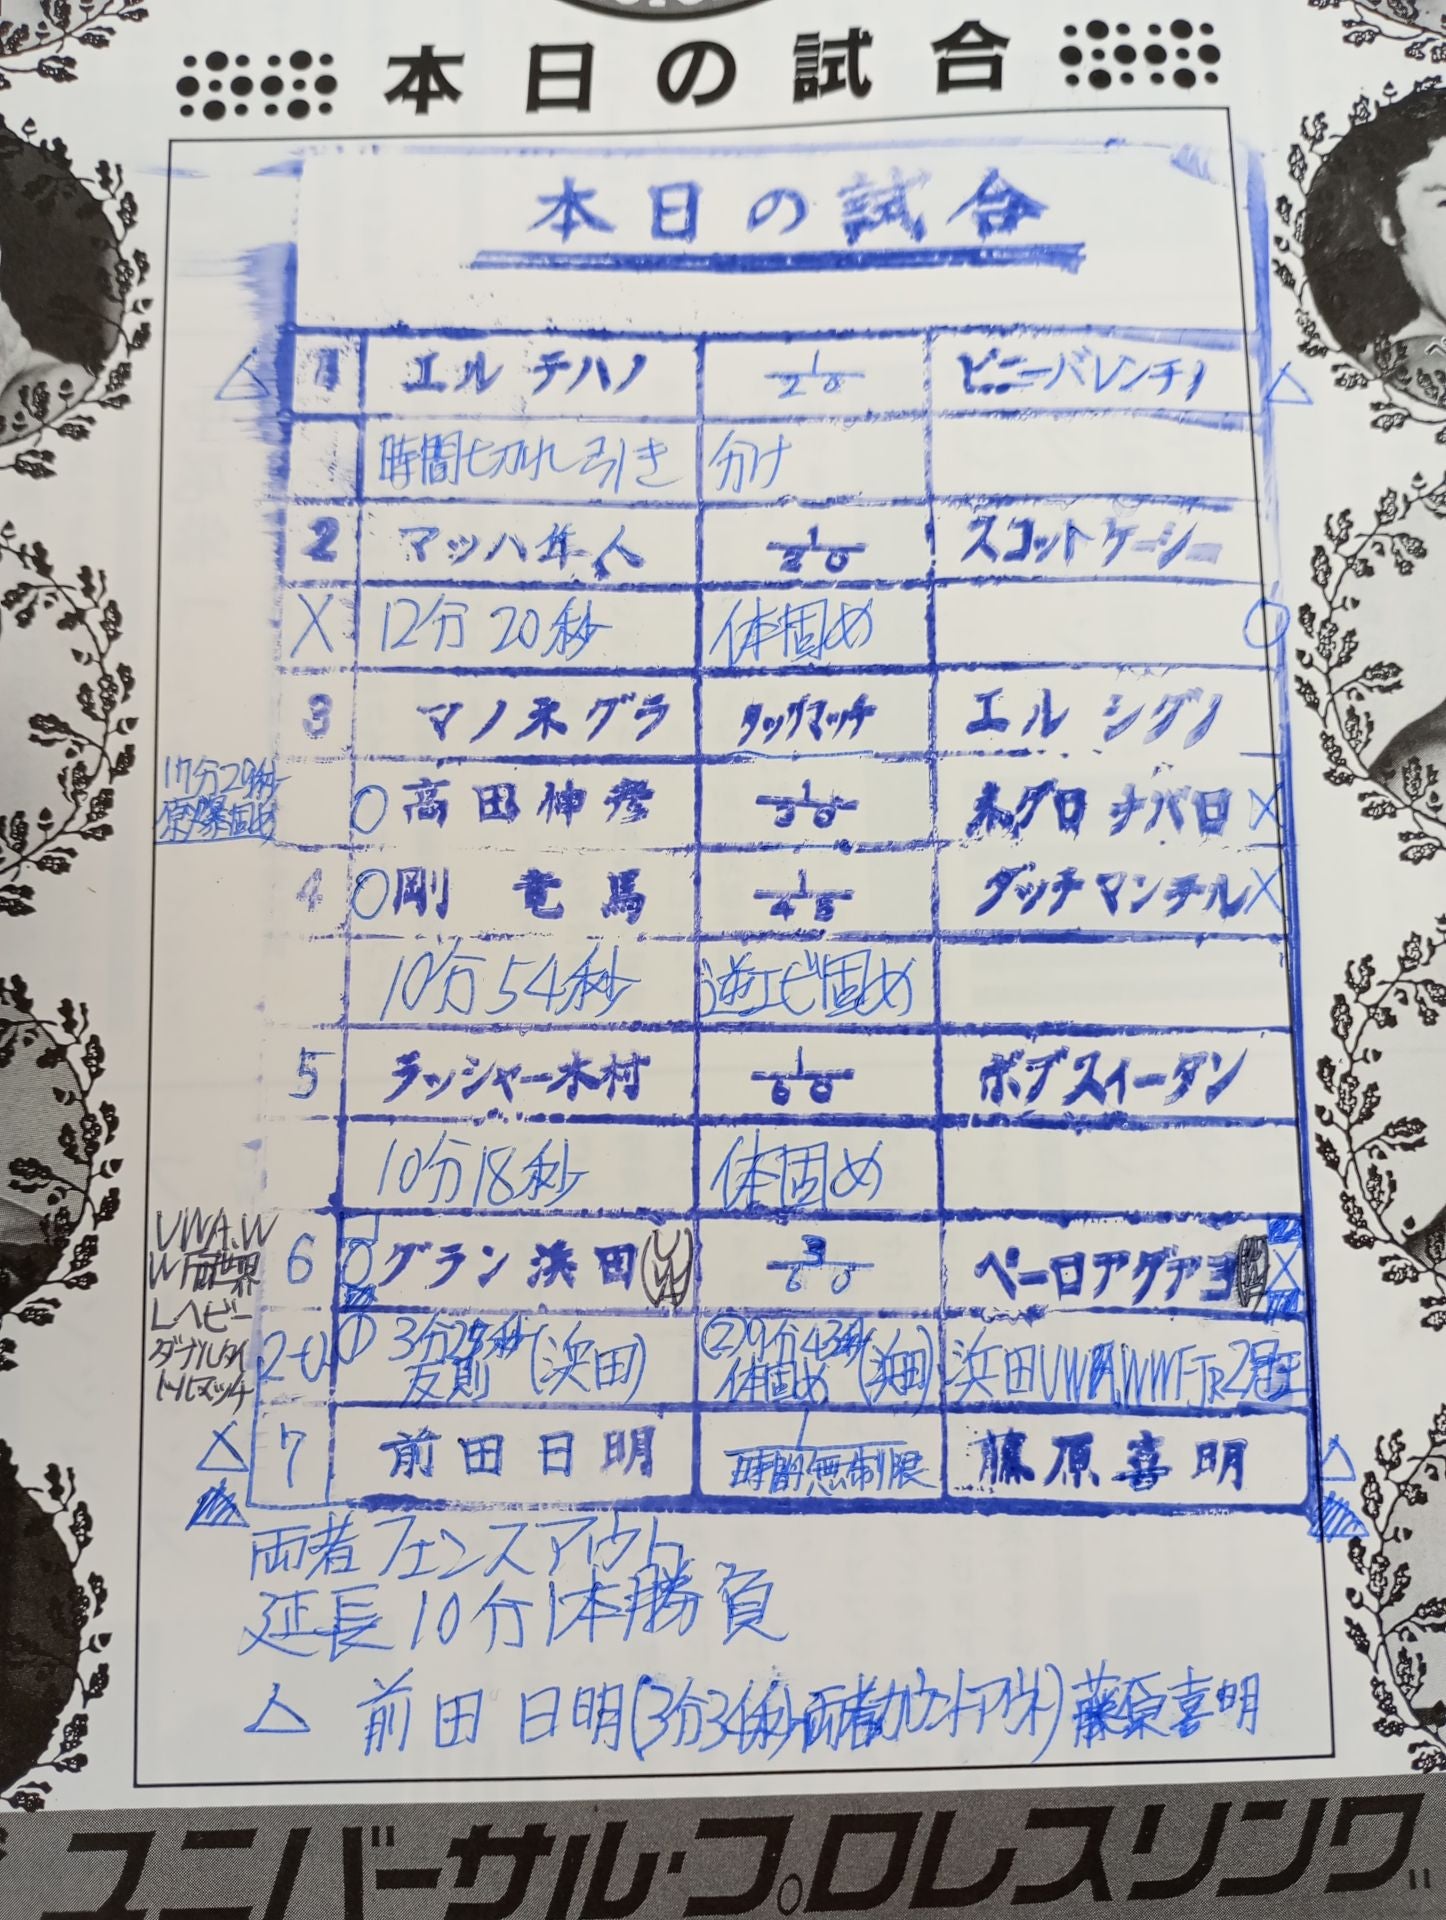 本日の試合
本日の試合
△ 1 エル テハノ 1/20 ビニーバレンチノ △
時間切れ引き 分け
2 マッハ隼人 1/20 スコットケーシー
X 12分20秒 体固め ○
3 マノネグラ タッグマッチ エル シグノ
17分29秒
原爆固め
○ 高田伸彦 1/30 ネグロ ナバロ X
4 ○ 剛 竜馬 1/45 ダッチマンテル X
10分54秒 逆エビ固め
5 ラッシャー木村 1/60 ボブスイータン
10分18秒 体固め
UWA.W
WF世界
Lヘビー
ダブルタイ
トルマッチ
6 ○ グラン浜田 3/60 ペーロアグアヨ X
2-0 ① 3分23秒 (浜田) ②9分43秒 (浜田) 浜田UWA.WWF.Jr2冠王
反則 体固め
△ 7 前田日明 1/時間無制限 藤原喜明 △
両者フェンスアウト
延長10分1本勝負
△ 前田日明(3分34秒両者カウントアウト)藤原喜明
ユニバーサル・プロレスリング